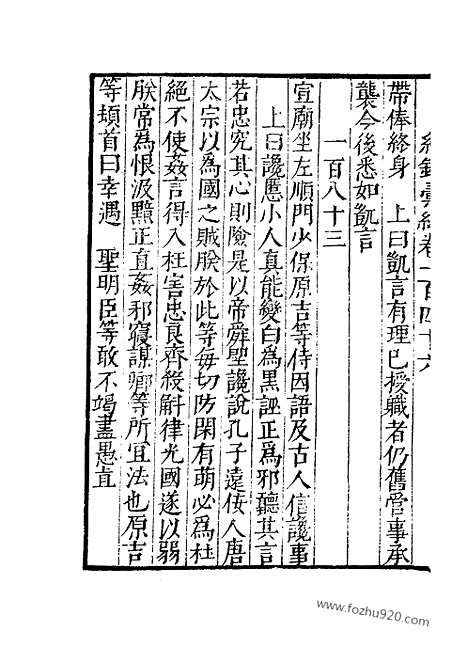 紀錄彙編卷一百四十六
帶俸終身　上曰凱言有理已授職者仍舊管事承
襲今後悉如凱言
一百八十三
宣廟坐左順門少保原吉等侍因語及古人信讒事
上曰讒慝小人真能變白為黑誣正為邪聽其言
若忠究其心則險是以帝舜聖讒說孔子遠佞人唐
太宗以為國之賊朕於此等每切防閑有萌必為杜
絕不使姦言得入枉害忠良齊殺斛律光國遂以弱
朕常為恨汲黯正直姦邪寢謀卿等所宜法也原吉
等頓首曰幸遇　聖明臣等敢不竭盡愚直
www.fozhu920.com